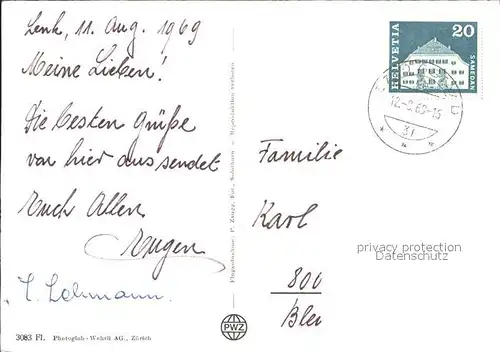 Lenk, 11. Aug. 1969
Meine Lieben!
Die besten Grüße
von hier aus sendet
Euch Allen
Eugen
Lohmann.
3083 Fl. Photoglob-Wehrli AG., Zürich
Reproduktion verboten
PWZ
HELVETIA
20
SAMEDAN
12.-8.69-15
Familie
Karl
800
privacy protection
Datenschutz